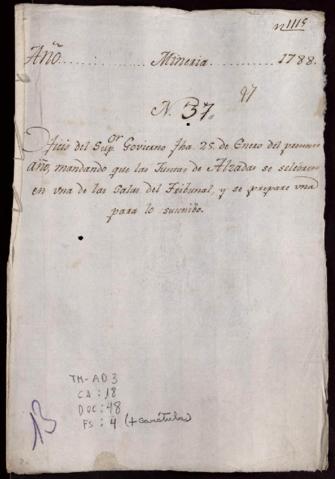 n 1115
Año. Mineria. 1788.
N. 37.
Oficio del Supor. Govierno fha. 25. de Enero del presente
año, mandando que las Juntas de Alzadas se selebren
en vna de las Salas del Tribunal, y se prepare vna
para lo
TM-AD3
CA: 18
DOC: 48
FS: 4 (+ carátula)
13